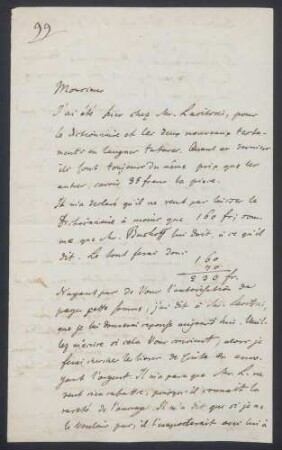 99
Monsieur
J'ai été hier chez Mr. pour
le dictionnaire et les deux nouveaux testa-
ments en langues tatares. Quant au dernier
ils sont toujours du même prix que les
autres, savoir, 35 francs la pièce.
Il m'a declaré qu'il ne veut pas laisser le
Dictionnaire à moins que 160 fr; som
me que Mr. lui doit, à ce qu'il
dit. Le tout ferai donc
160
70
230 fr.
N'ayant pas de Vous l'autorisation de
payer cette somme, j'ai dit à Mr.
que je lui donnerai reponse aujourd'hui. Veuil-
lez m'écrire si cela Vous convient, alors je
ferai chercher le livre de suite en envo-
yant l'argent. Il n'a pas que Mr. L. ne
veut rien rabattre, puisqu'il connait la
rareté de l'ouvrage. Il m'a dit que si je ne
le voulais pas, il l'emporterait avec lui à